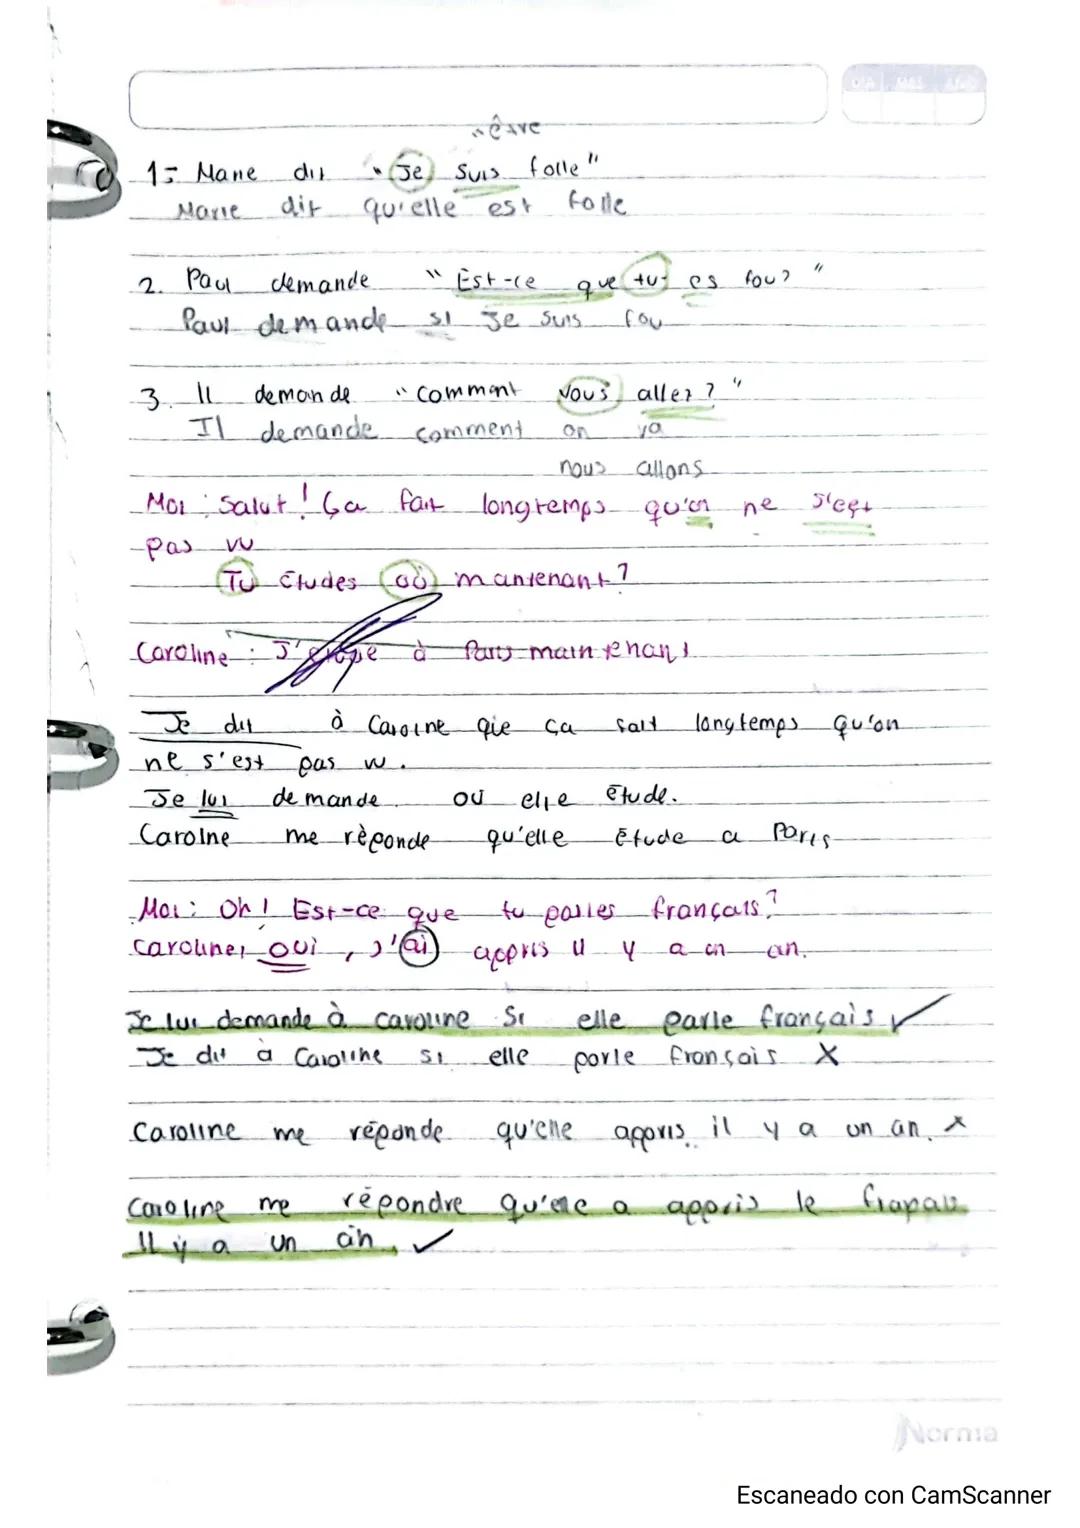 DIA MES AÑO
"être
1- Marie dit "Je suis folle"
Marie dit qu'elle est folle
2. Paul demande "Est-ce que tu es fou?"
Paul demande si Je suis fou
3. Il demande "comment vous allez?"
Il demande comment on va
nous allons
Moi: Salut! Ça fait longtemps qu'on ne s'est
pas vu
Tu études où maintenant?
Caroline: J' à Paris maintenant
Je dit à Caroine que ça fait longtemps qu'on
ne s'est pas vu.
Je lui demande où elle étude.
Carolne me réponde qu'elle étude a Paris
Moi: Oh! Est-ce que tu parles français?
Caroline, oui, j'ai appris il y a un an.
Je lui demande à caroline Si elle parle français ✓
Je dit a Caroline si elle parle français X
Caroline me réponde qu'elle appris il y a un an. x
Caroline me répondre qu'elle a appris le
Il y a un an. ✓
Norma
Escaneado con CamScanner